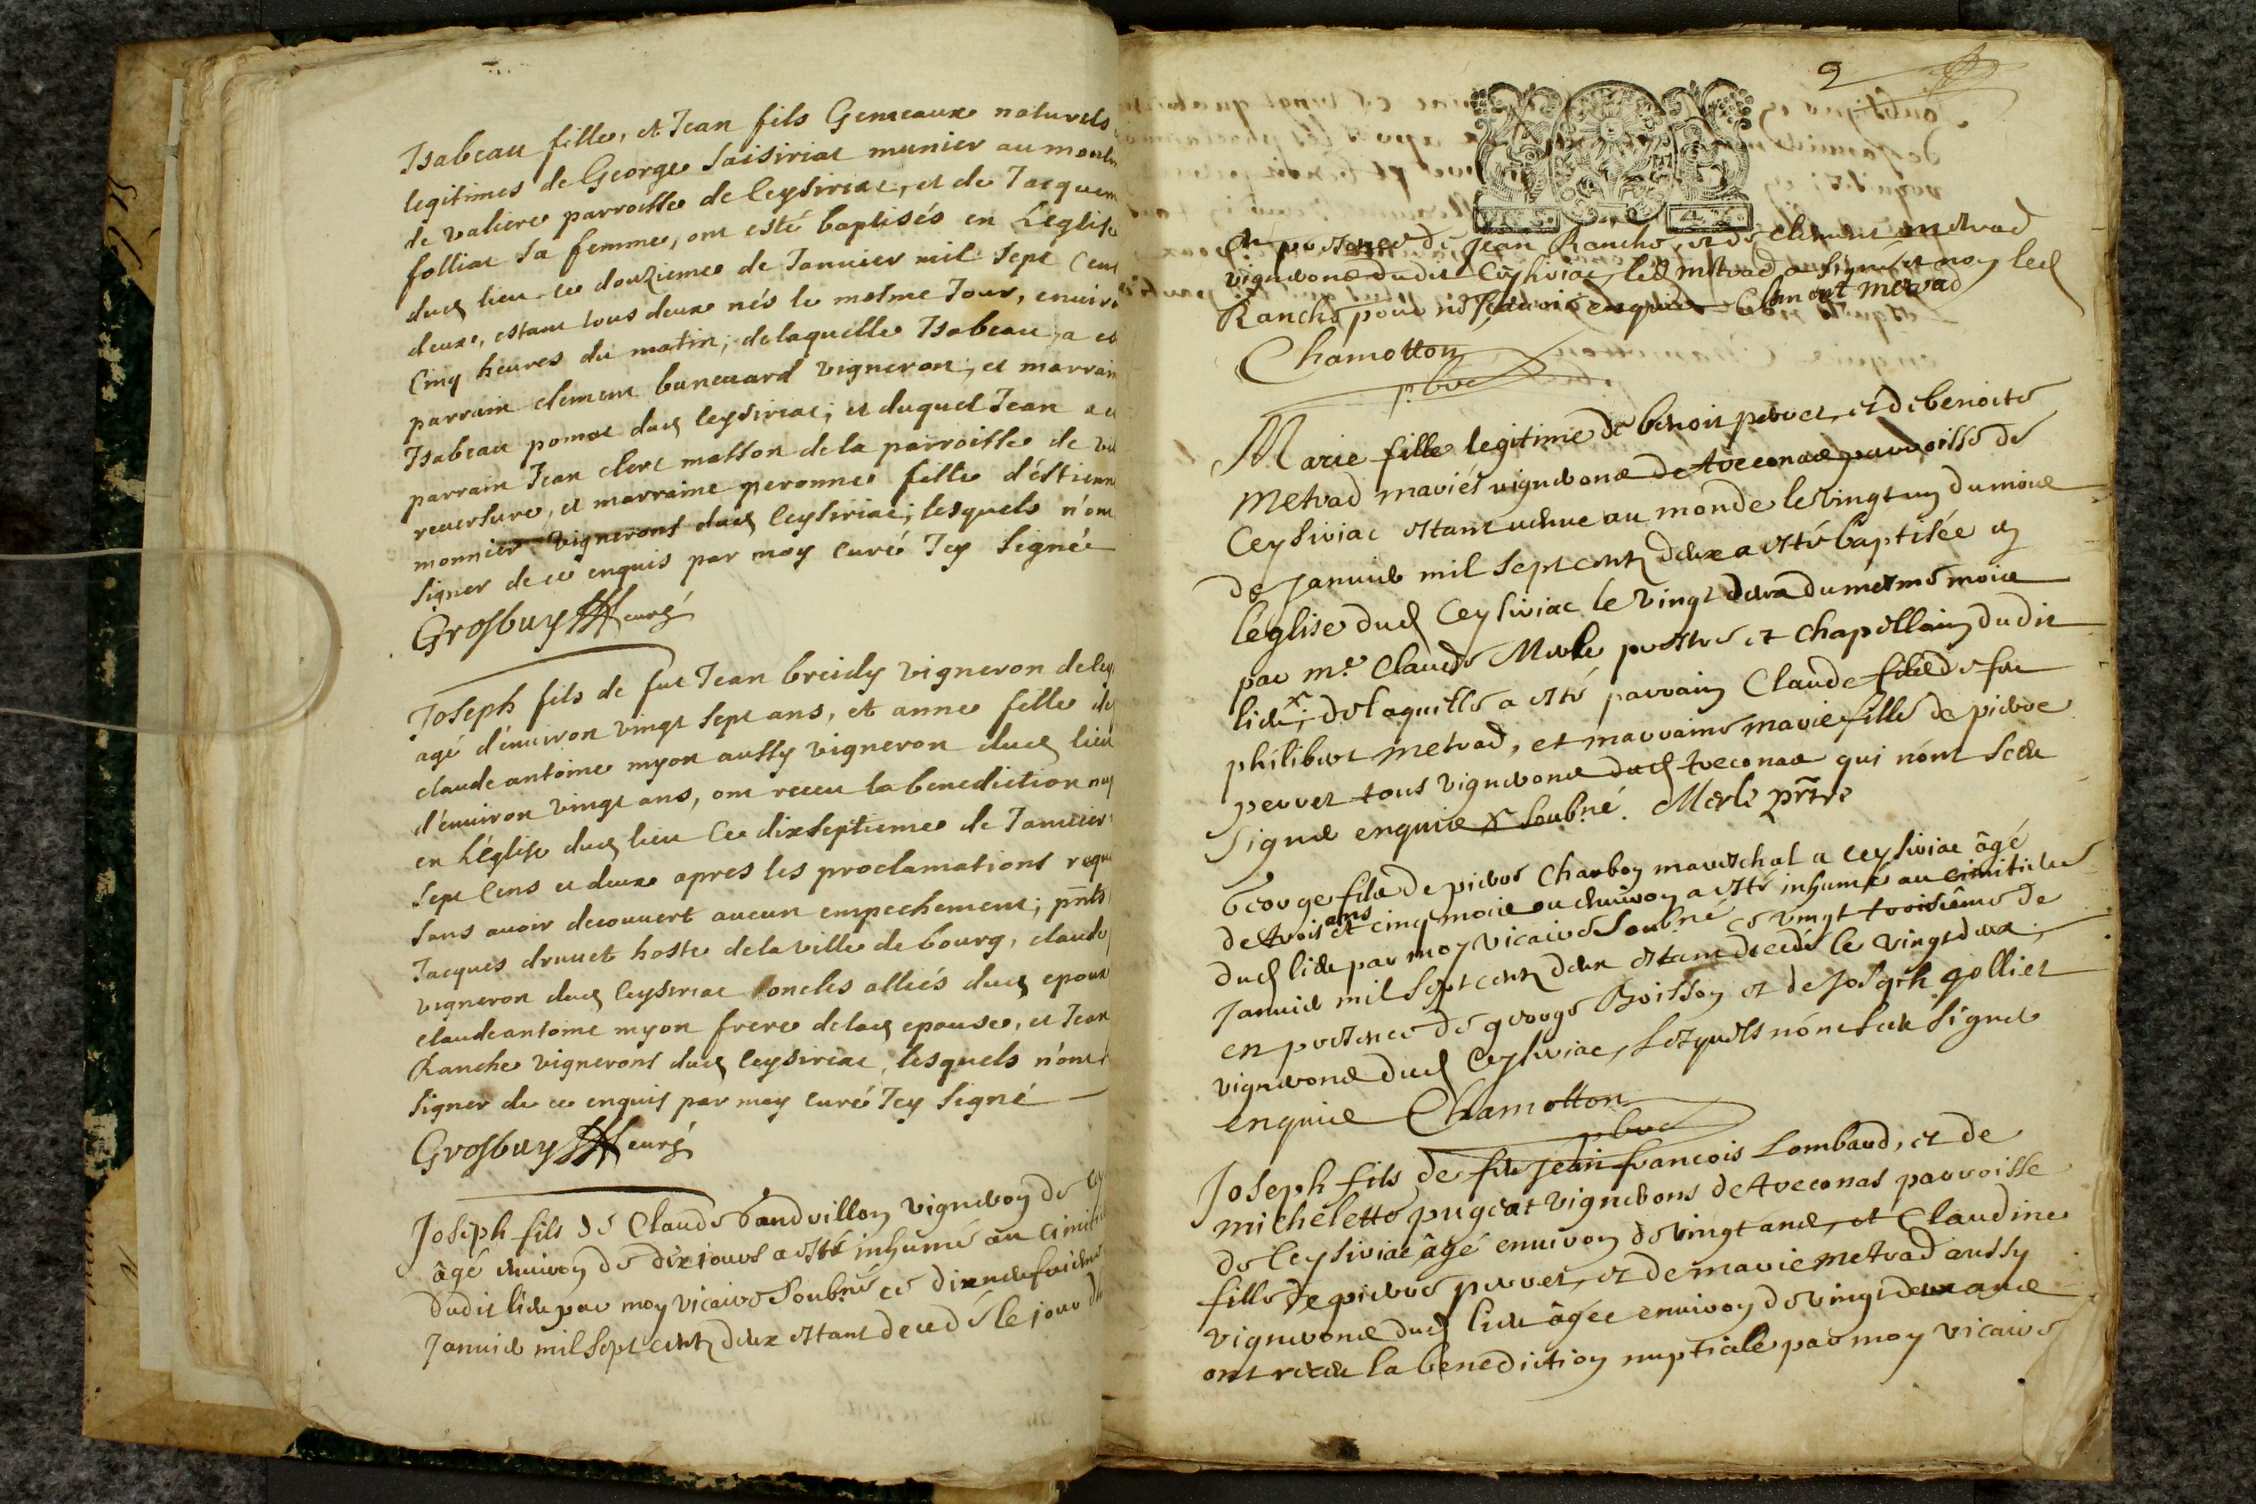 Isabeau fille, et Jean fils Gemeaux naturels
legitimes de George Saisiriat munier au moulin
de valiere parroisse de Ceysiriat, et de Jacquem
folliat sa femme, ont esté baptisés en L'église
dud lieu ce douzieme de Januier mil Sept Cent
deux, estant tous deux nés le mesme Jour, enuiro
Cinq heures du matin; de laquelle Isabeau a es
parrain clement baneuard vigneron, et marrain
Isabeau pomat dud Ceysiriat; et duquel Jean a e
parrain Jean clert masson de la parroisse de vil
reuersure, et marraine peronne fille d'éstienn
monnier vignerons dud Ceysiriat; lesquels n'ont
signer de ce enquis par moy curé Icy Signée
Grosbuy curé
Joseph fils de fut Jean breidy vigneron de Cey
agé d'énuiron vingt sept ans, et anne fille de
claude antoine myon aussy vigneron dud lieu
d'énuiron vingt ans, ont receu la benediction nup
en L'église dud lieu Ce dixseptieme de Januier
Sept Cens et deux apres les proclamations requ
sans auoir decouuert aucun empechement; pnts
Jacques druuet hoste de la ville de bourg, claude
vigneron dud Ceysiriat oncles alliés dud epoux
claude antoine myon frere de lad epouse, et Jean
Ranche vignerons dud Ceysiriat, lesquels n'ont
signer de ce enquis par moy curé Icy Signé
Grosbuy curé
Joseph fils de Claude Gandvillon vigneron de Cey
âgé enuiron de dix jours a esté inhumé au Cimiti
dudit lieu par moy vicaire Soubné ce dixneufuieme
Januier mil Sept centz deux estant decedé le jour d
2
En presence de Jean Ranche, et de Clement metrad
vignerons dudit Ceysiriat, led metrad a signé et non led
Ranche pour ne scauoir enquis Clement metrad
Chamotton
pbre
Marie fille legitime de benoit perret, et de benoite
Metrad mariés vignerons de Treconas parroisse de
Ceysiriat estant venue au monde le vingt un du mois
de Januier mil sept centz deux a esté baptisée en
leglise dud Ceysiriat le vingt deux du mesme mois
par me Claude Merle prestre et chapellain dudit
lieu; x de laquelle a esté parrain Claude fils de feu
philibert metrad, et marraine marie fille de pierre
perret tous vignerons dud Treconas qui nónt sceu
signer enquis x soubné. Merle prtre
George fils de pierre Charbon mareschal a Ceysiriat âgé
de trois ans et cinq mois ou enuiron a esté inhumé au cimitiere
dud lieu par moy vicaire Soubné ce vingt troisiême de
Januier mil sept centz deux estant decedé le vingt deux
en presence de george Boisson et de Joseph gollier
vignerons dud Ceysiriat, Lesquels nónt sceu signer
enquis Chamotton
pbre
Joseph fils de feu Jean francois Lombard, et de
michelette pugeat vignerons de Treconas parroisse
de Ceysiriat âgé enuiron de vingt ans, et Claudine
fille de pierre perret, et de marie metrad aussy
vignerons dud lieu âgée enuiron de vingt deux ans
ont receu la benediction nuptiale par moy vicaire